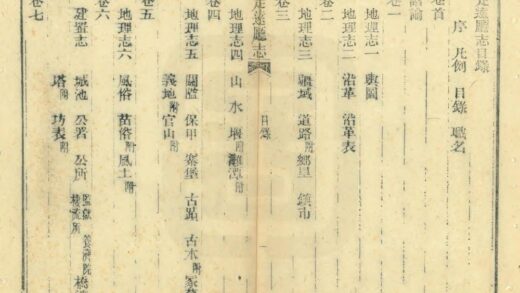 定遠廳志目錄
卷首
序 凡例 目錄 職名
諭
卷一
地理志一 輿圖
地理志二 沿革 沿革表
卷二
地理志三 疆域 道路附 鄉里 鎮市
卷三
定遠廳志 目錄
地理志四 山 水 堰附
卷四
地理志五 關隘 保甲 寨堡 古蹟 古木附
義地附 官山附
卷五
地理志六 風俗 苗俗附 風土附
卷六
建置志 城池 公署 公所 監獄 養濟院
塔附 坊表附
卷七